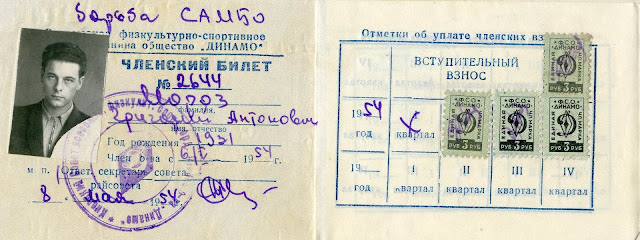 Борьба САМБО
физкультурно-спортивное
общество „ДИНАМО"
ЧЛЕНСКИЙ БИЛЕТ
№ 2644
Мороз
фамилия
Григорий Антонович
имя, отчество
Год рождения 1931
Член о-ва с 1954
м п. Ответ. секретарь совета
райсовета
8 мая 1954
Отметки об уплате членских взносов
ВСТУПИТЕЛЬНЫЙ
ВЗНОС
1954
год
квартал
19
год
I
квартал
II
квартал
III
квартал
IV
квартал
ФСО
ДИНАМО
ЕДИНАЯ
ЧЛ. МАРКА
РУБ 3 РУБ
ФСО
ДИНАМО
ЕДИНАЯ
ЧЛ. МАРКА
РУБ 3 РУБ
ФСО
ДИНАМО
ЕДИНАЯ
ЧЛ. МАРКА
РУБ 3 РУБ
ФСО
ДИНАМО
ЕДИНАЯ
ЧЛ. МАРКА
РУБ 3 РУБ